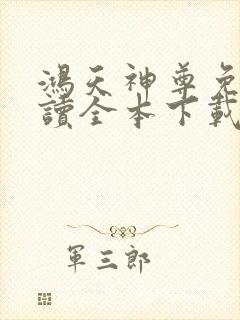 鴻天神尊免
讀全本下載
軍三郎